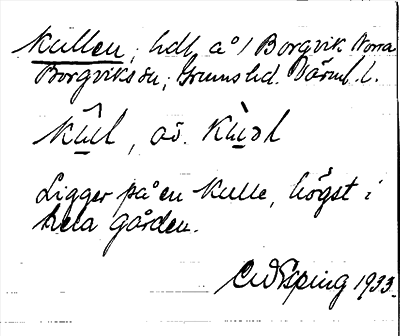 Kullen, hdl å 1 Borgvik Norra
Borgviks sn, Grums hd. Värml. l.
Kûl, av. Kùəl
Ligger på en kulle, högst i
hela gården.
CW Esping 1933.